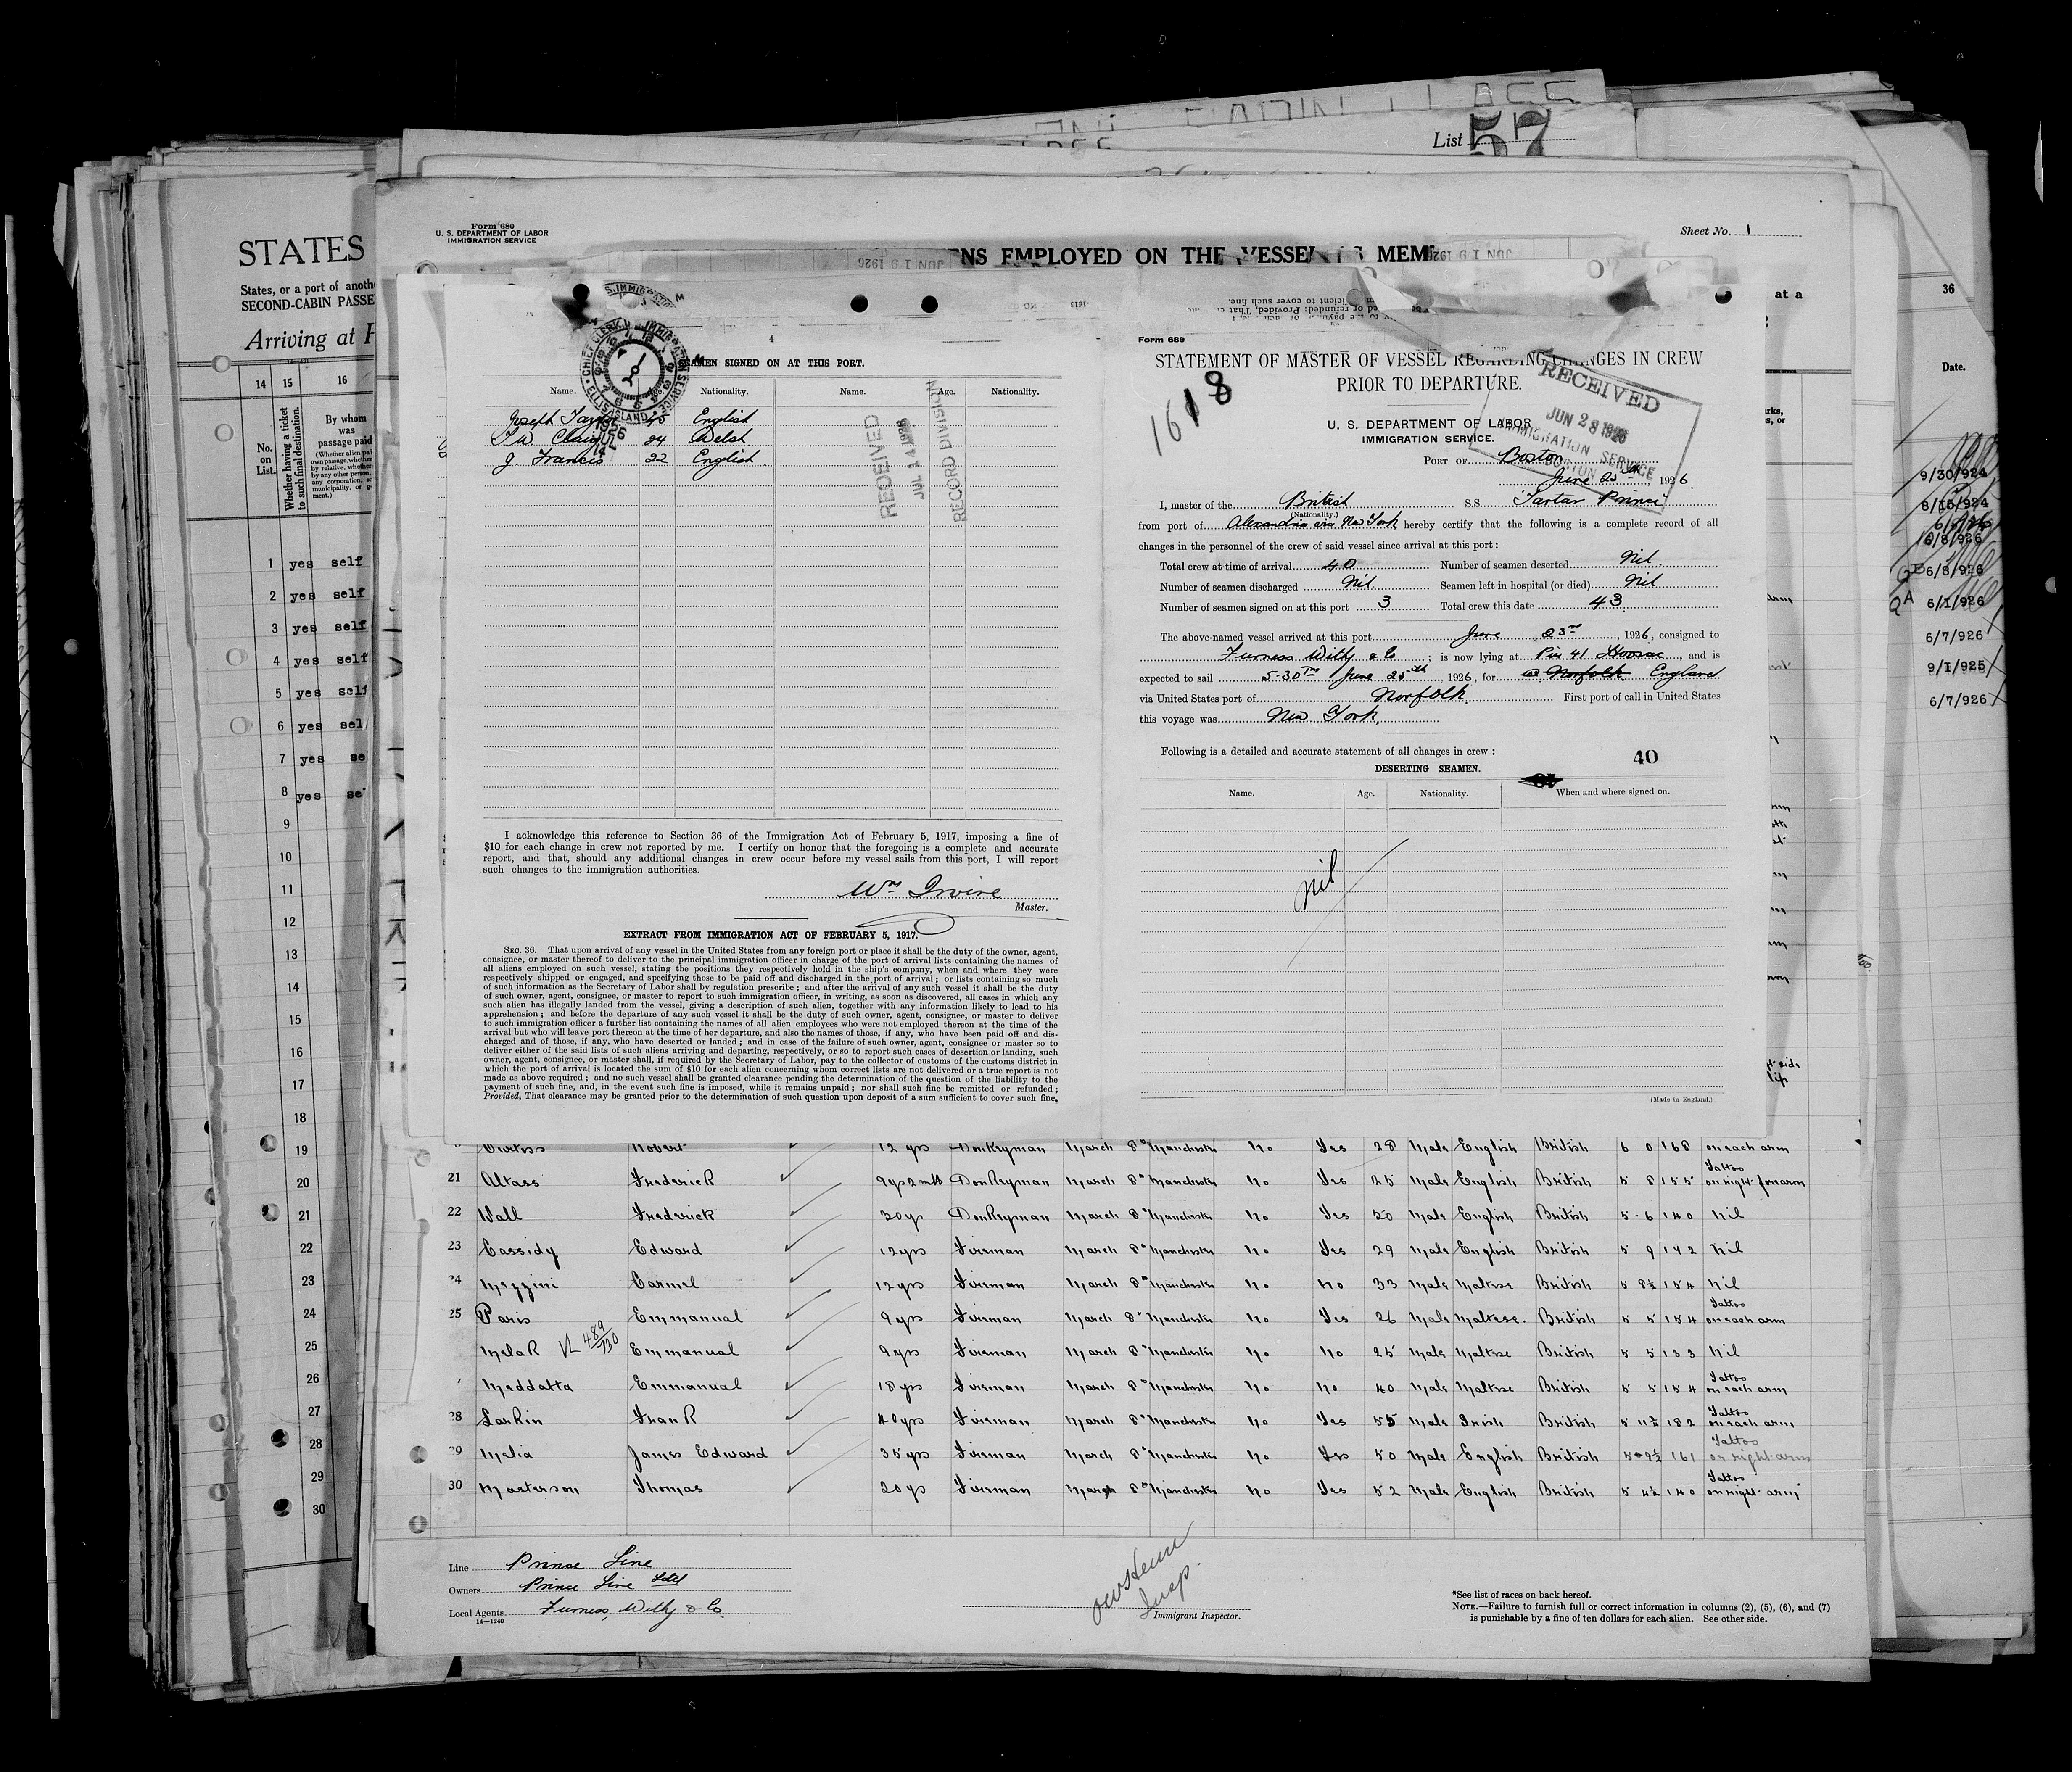 List 57
Form 680
U. S. DEPARTMENT OF LABOR
IMMIGRATION SERVICE
Sheet No. 1
ENS EMPLOYED ON THE VESSEL AS MEM
STATES
States, or a port of anoth
SECOND-CABIN PASSE
Arriving at
14 15 16
No. on List.
Whether having a ticket to such final destination.
By whom
was
passage paid
1 yes self
2 yes self
3 yes self
4 yes self
5 yes self
6 yes sel
7 yes se
8 yes se
9
10
11
12
13
14
15
16
17
18
19
20
21
22
23
24
25
26
27
28
29
30
SEAMEN SIGNED ON AT THIS PORT.
Name. Nationality. Name. Age. Nationality.
Joseph English
24 Welsh
J. Francis 22 English
RECEIVED
JUL 14 1926
RECORD DIVISION
I acknowledge this reference to Section 36 of the Immigration Act of February 5, 1917, imposing a fine of
$10 for each change in crew not reported by me. I certify on honor that the foregoing is a complete and accurate
report, and that, should any additional changes in crew occur before my vessel sails from this port, I will report
such changes to the immigration authorities.
Wm Irvine
Master.
EXTRACT FROM IMMIGRATION ACT OF FEBRUARY 5, 1917.
SEC. 36. That upon arrival of any vessel in the United States from any foreign port or place it shall be the duty of the owner, agent,
consignee, or master thereof to deliver to the principal immigration officer in charge of the port of arrival lists containing the names of
all aliens employed on such vessel, stating the positions they respectively hold in the ship's company, when and where they were
respectively shipped or engaged, and specifying those to be paid off and discharged in the port of arrival; or lists containing so much
of such information as the Secretary of Labor shall by regulation prescribe; and after the arrival of any such vessel it shall be the duty
of such owner, agent, consignee, or master to report to such immigration officer, in writing, as soon as discovered, all cases in which any
such alien has illegally landed from the vessel, giving a description of such alien, together with any information likely to lead to his
apprehension; and before the departure of any such vessel it shall be the duty of such owner, agent, consignee, or master to deliver
to such immigration officer a further list containing the names of all alien employees who were not employed thereon at the time of the
arrival but who will leave port thereon at the time of her departure, and also the names of those, if any, who have been paid off and dis-
charged and of those, if any, who have deserted or landed; and in case of the failure of such owner, agent, consignee or master so to
deliver either of the said lists of such aliens arriving and departing, respectively, or so to report such cases of desertion or landing, such
owner, agent, consignee, or master shall, if required by the Secretary of Labor, pay to the collector of customs of the customs district in
which the port of arrival is located the sum of $10 for each alien concerning whom correct lists are not delivered or a true report is not
made as above required; and no such vessel shall be granted clearance pending the determination of the question of the liability to the
payment of such fine, and, in the event such fine is imposed, while it remains unpaid; nor shall such fine be remitted or refunded;
Provided, That clearance may be granted prior to the determination of such question upon deposit of a sum sufficient to cover such fine,
Form 689
STATEMENT OF MASTER OF VESSEL REGARDING CHANGES IN CREW
PRIOR TO DEPARTURE.
1618
RECEIVED
JUN 28 1926
IMMIGRATION SERVICE
BOSTON
U. S. DEPARTMENT OF LABOR
IMMIGRATION SERVICE.
PORT OF Boston
June 25th, 1926.
I, master of the British S.S. Tartar Prince
(Nationality.)
from port of Alexandria via New York hereby certify that the following is a complete record of all
changes in the personnel of the crew of said vessel since arrival at this port:
Total crew at time of arrival 40 Number of seamen deserted Nil.
Number of seamen discharged Nil. Seamen left in hospital (or died) Nil
Number of seamen signed on at this port 3 Total crew this date 43.
The above-named vessel arrived at this port June 23rd, 1926, consigned to
Furness Withy & Co; is now lying at Pier 41 Hoosac, and is
expected to sail 5-30 PM June 25th, 1926, for Norfolk England
via United States port of Norfolk. First port of call in United States
this voyage was New York.
Following is a detailed and accurate statement of all changes in crew:
40
DESERTING SEAMEN.
Name. Age. Nationality. When and where signed on.
Nil
(Made in England.)
at a
36
Date.
9/30/924
8/15/924
6/8/926
6/1/926
6/7/926
9/1/925
6/7/926
Curtiss Robert 12 yrs Donkeyman March 8" Manchester No Yes 28 Male English British 6 0 168 on each arm
21 Altass Frederick 9ys2mth Donkeyman March 8" Manchester No Yes 25 Male English British 5 8 155 Tattoo on right forearm
22 Wall Frederick 30yr Donkeyman March 8" Manchester No Yes 50 Male English British 5-6 140 Nil
23 Cassidy Edward 12yrs Fireman March 8" Manchester No Yes 29 Male English British 5 9 142 Nil
24 Mezzini Carmel 12yrs Fireman March 8" Manchester No No 33 Male Maltese British 5 8½ 154 Nil
25 Paris Emmanual 9yrs Fireman March 8" Manchester No Yes 26 Male Maltese. British 5 5 154 Tattoo on each arm
Melak VL 489/130 Emmanual 9yrs Fireman March 8" Manchester No No 25 Male Maltese British 5 5 133 Nil
Meddatta Emmanual 18yrs Fireman March 8" Manchester No No 40 Male Maltese British 5 5 154 Tattoo on each arm
28 Larkin Frank 40yrs Fireman March 8" Manchester No Yes 55 Male Irish British 5 11½ 182 Tattoo on each arm
29 Melia James Edward 35yrs Fireman March 8" Manchester No Yes 50 Male English British 5-9½ 161 Tattoo on right arm
30 Masterson Thomas 20ys Fireman March 8" Manchester No Yes 52 Male English British 5 4½ 140 Tattoo on right arm
Line Prince Line
Owners Prince Line Ltd
Local Agents Furness, Withy & Co.
14-1240
Insp.
Immigrant Inspector.
*See list of races on back hereof.
NOTE.—Failure to furnish full or correct information in columns (2), (5), (6), and (7)
is punishable by a fine of ten dollars for each alien. See other side.